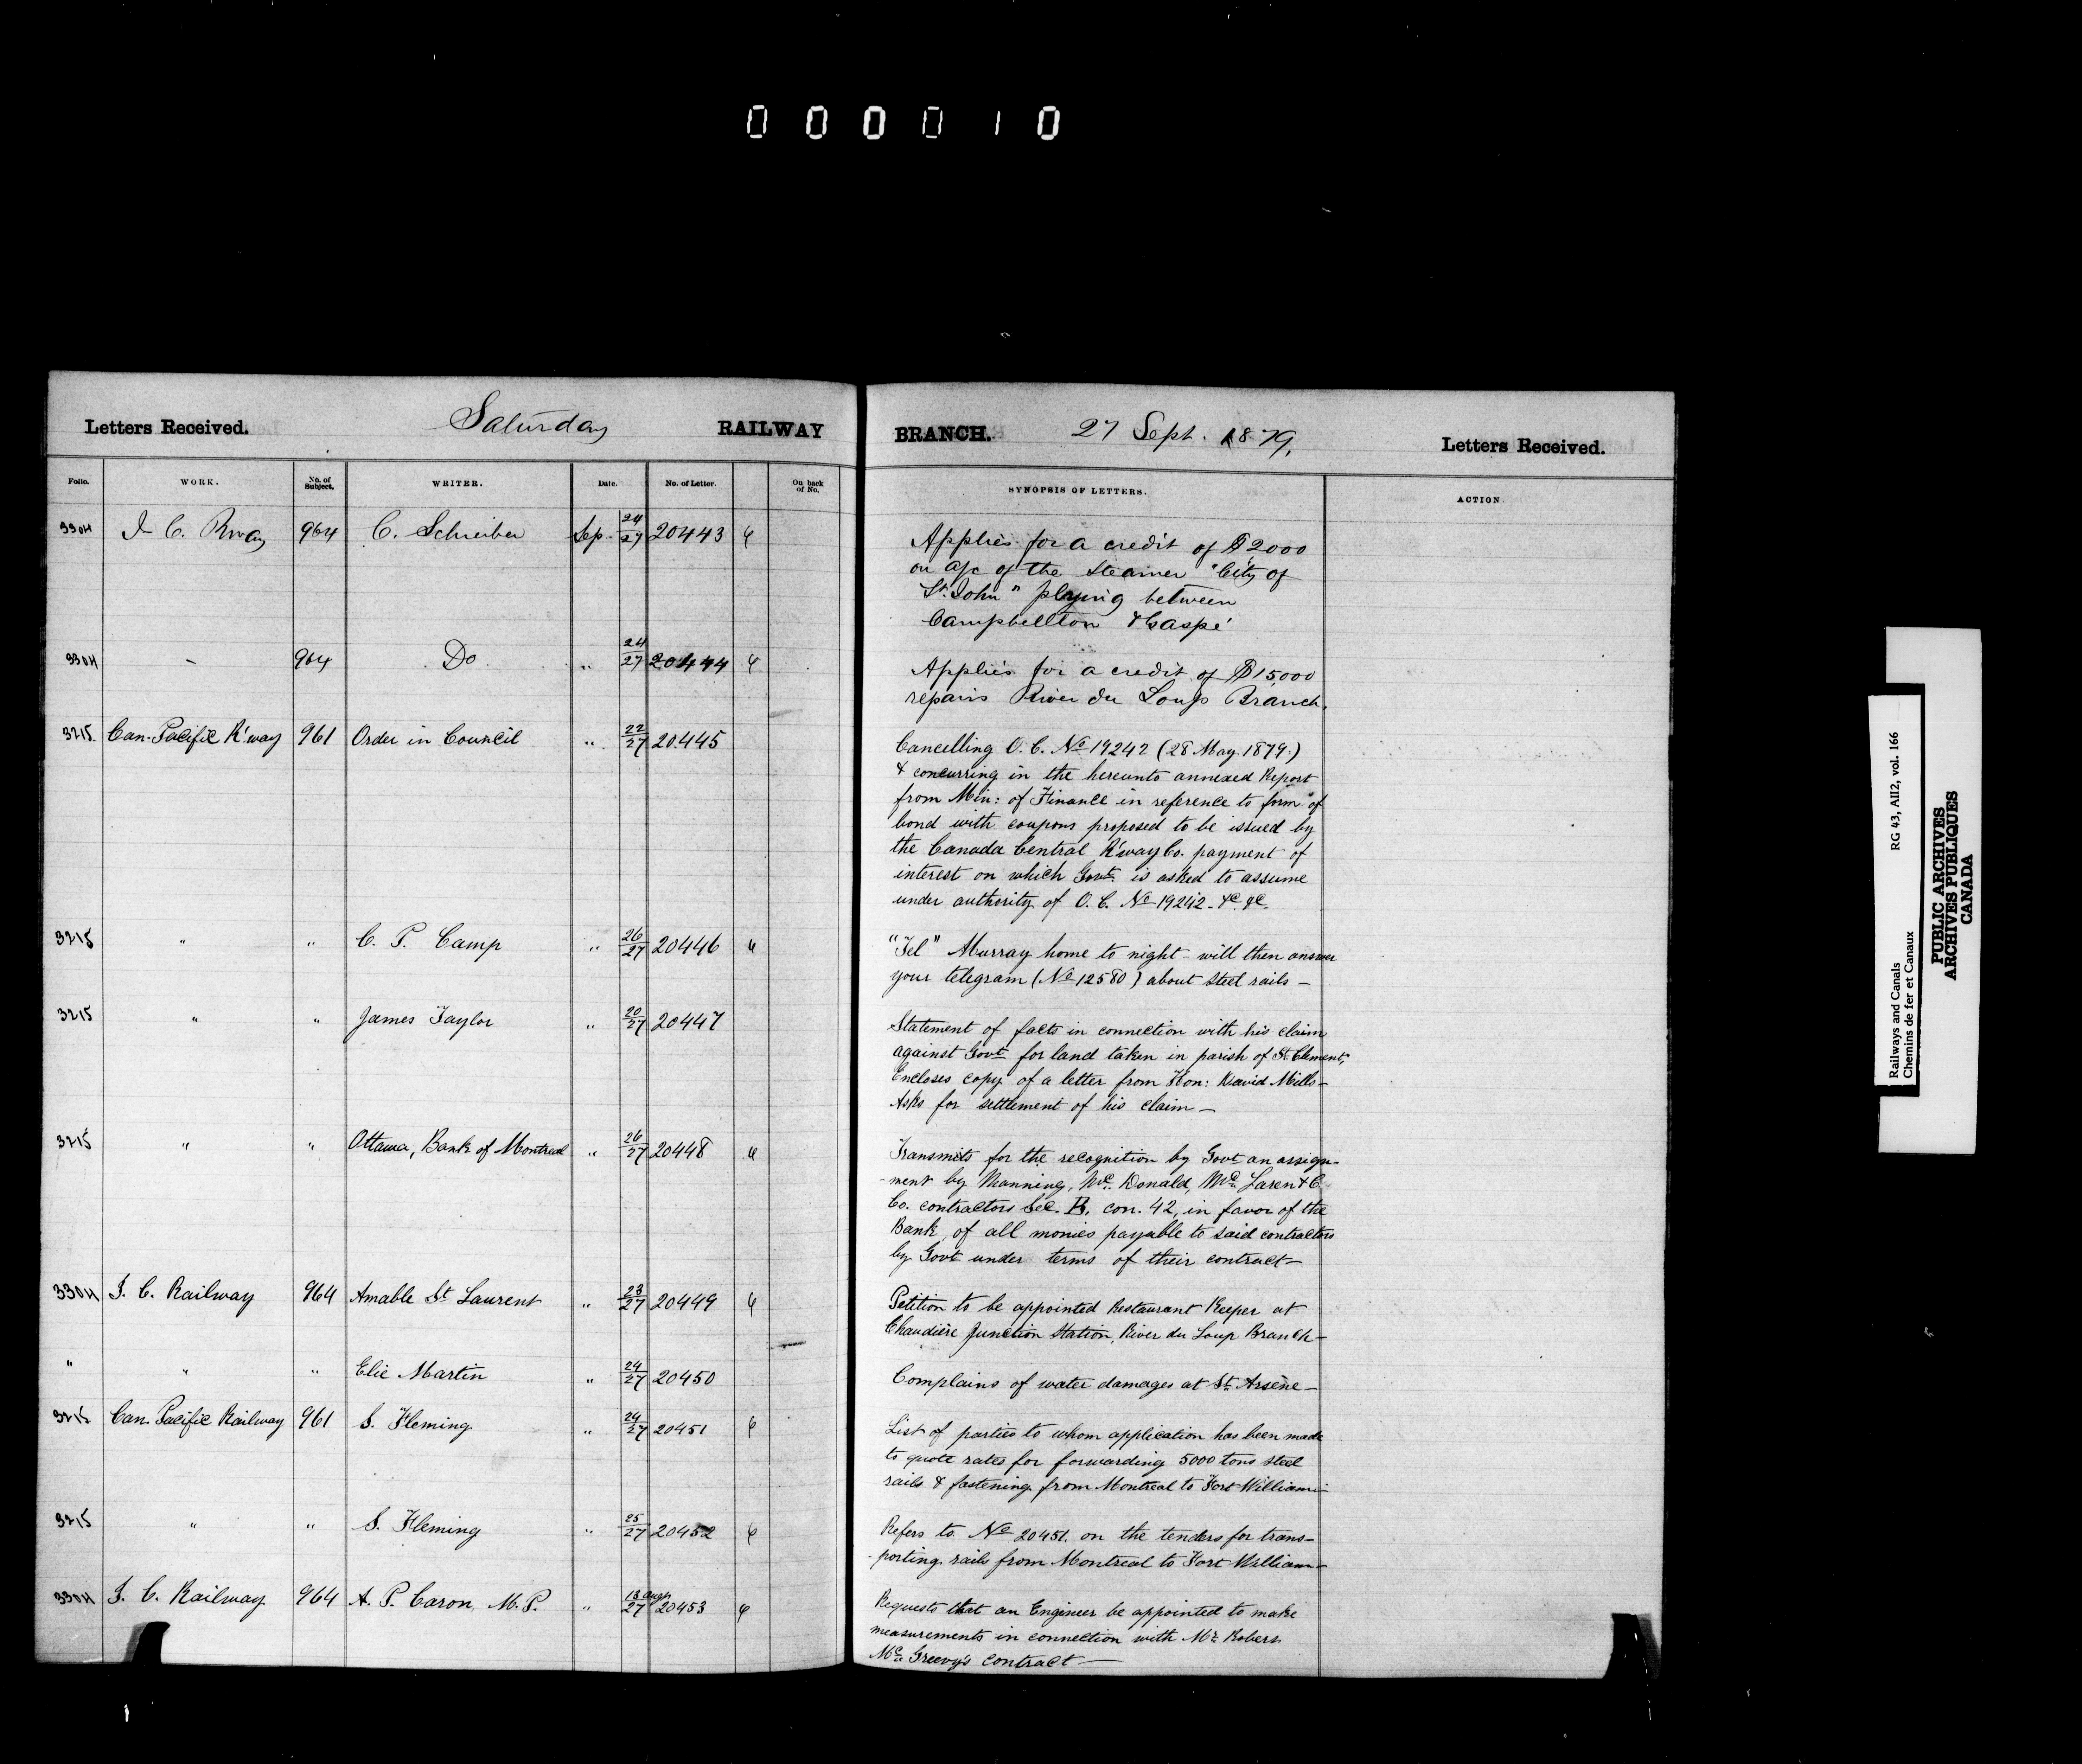 000010
Letters Received. Saturday RAILWAY
BRANCH. 27 Sept. 1879. Letters Received.
Folio. WORK. No. of Subject. WRITER. Date. No. of Letter. On back of No.
SYNOPSIS OF LETTERS. ACTION.
3304 I C. Rway 964 C. Schreiber Sep. 24/27 20443
Applies for a credit of $2000
on a/c of the steamer "City of
St. John" plying between
Campbellton & Gaspé
3304 " 964 Do " 24/27 20444
Applies for a credit of $15,000
repairs River du Loup Branch.
3215 Can. Pacific R'way 961 Order in Council " 22/27 20445
Cancelling O. C. No 19242 (28 May. 1879.)
& concurring in the hereunto annexed Report
from Min: of Finance in reference to form of
bond with coupons proposed to be issued by
the Canada Central R'way Co. payment of
interest on which Govt. is asked to assume
under authority of O. C. No 19242 - &c. &c.
3215 " " C. P. Camp " 26/27 20446
"Tel" Murray home to night - will then answer
your telegram (No 12580) about steel rails -
3215 " " James Taylor " 20/27 20447
Statement of facts in connection with his claim
against Govt for land taken in parish of St. Clement,
Encloses copy of a letter from Hon: David Mills -
Asks for settlement of his claim -
3215 " " Ottawa, Bank of Montreal " 26/27 20448
Transmits for the recognition by Govt an assign-
-ment by Manning, Mc. Donald, Mc. Laren & C.
Co. contractors Sec. B. con. 42, in favor of the
Bank, of all monies payable to said contractors
by Govt under terms of their contract -
3304 I. C. Railway 964 Amable St Laurent " 23/27 20449
Petition to be appointed Restaurant Keeper at
Chaudière Junction Station, River du Loup Branch -
" " " Elie Martin " 24/27 20450
Complains of water damages at St. Arsène -
3215 Can. Pacific Railway 961 S. Fleming " 24/27 20451
List of parties to whom application has been made
to quote rates for forwarding 5000 tons steel
rails & fastening from Montreal to Fort William -
3215 " " S. Fleming " 25/27 20452
Refers to No 20451. on the tenders for trans-
-porting rails from Montreal to Fort William -
3304 I. C. Railway 964 A. P. Caron, M. P. " 13 augt/27 20453
Requests that an Engineer be appointed to make
measurements in connection with Mr. Robert
Mc. Greevy's contract -
Railways and Canals RG 43, AII2, vol. 166
Chemins de fer et Canaux
PUBLIC ARCHIVES
ARCHIVES PUBLIQUES
CANADA